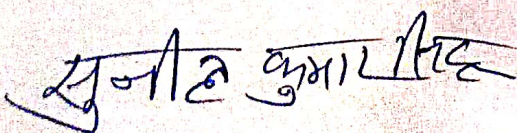 सुनील कुमार सिंह